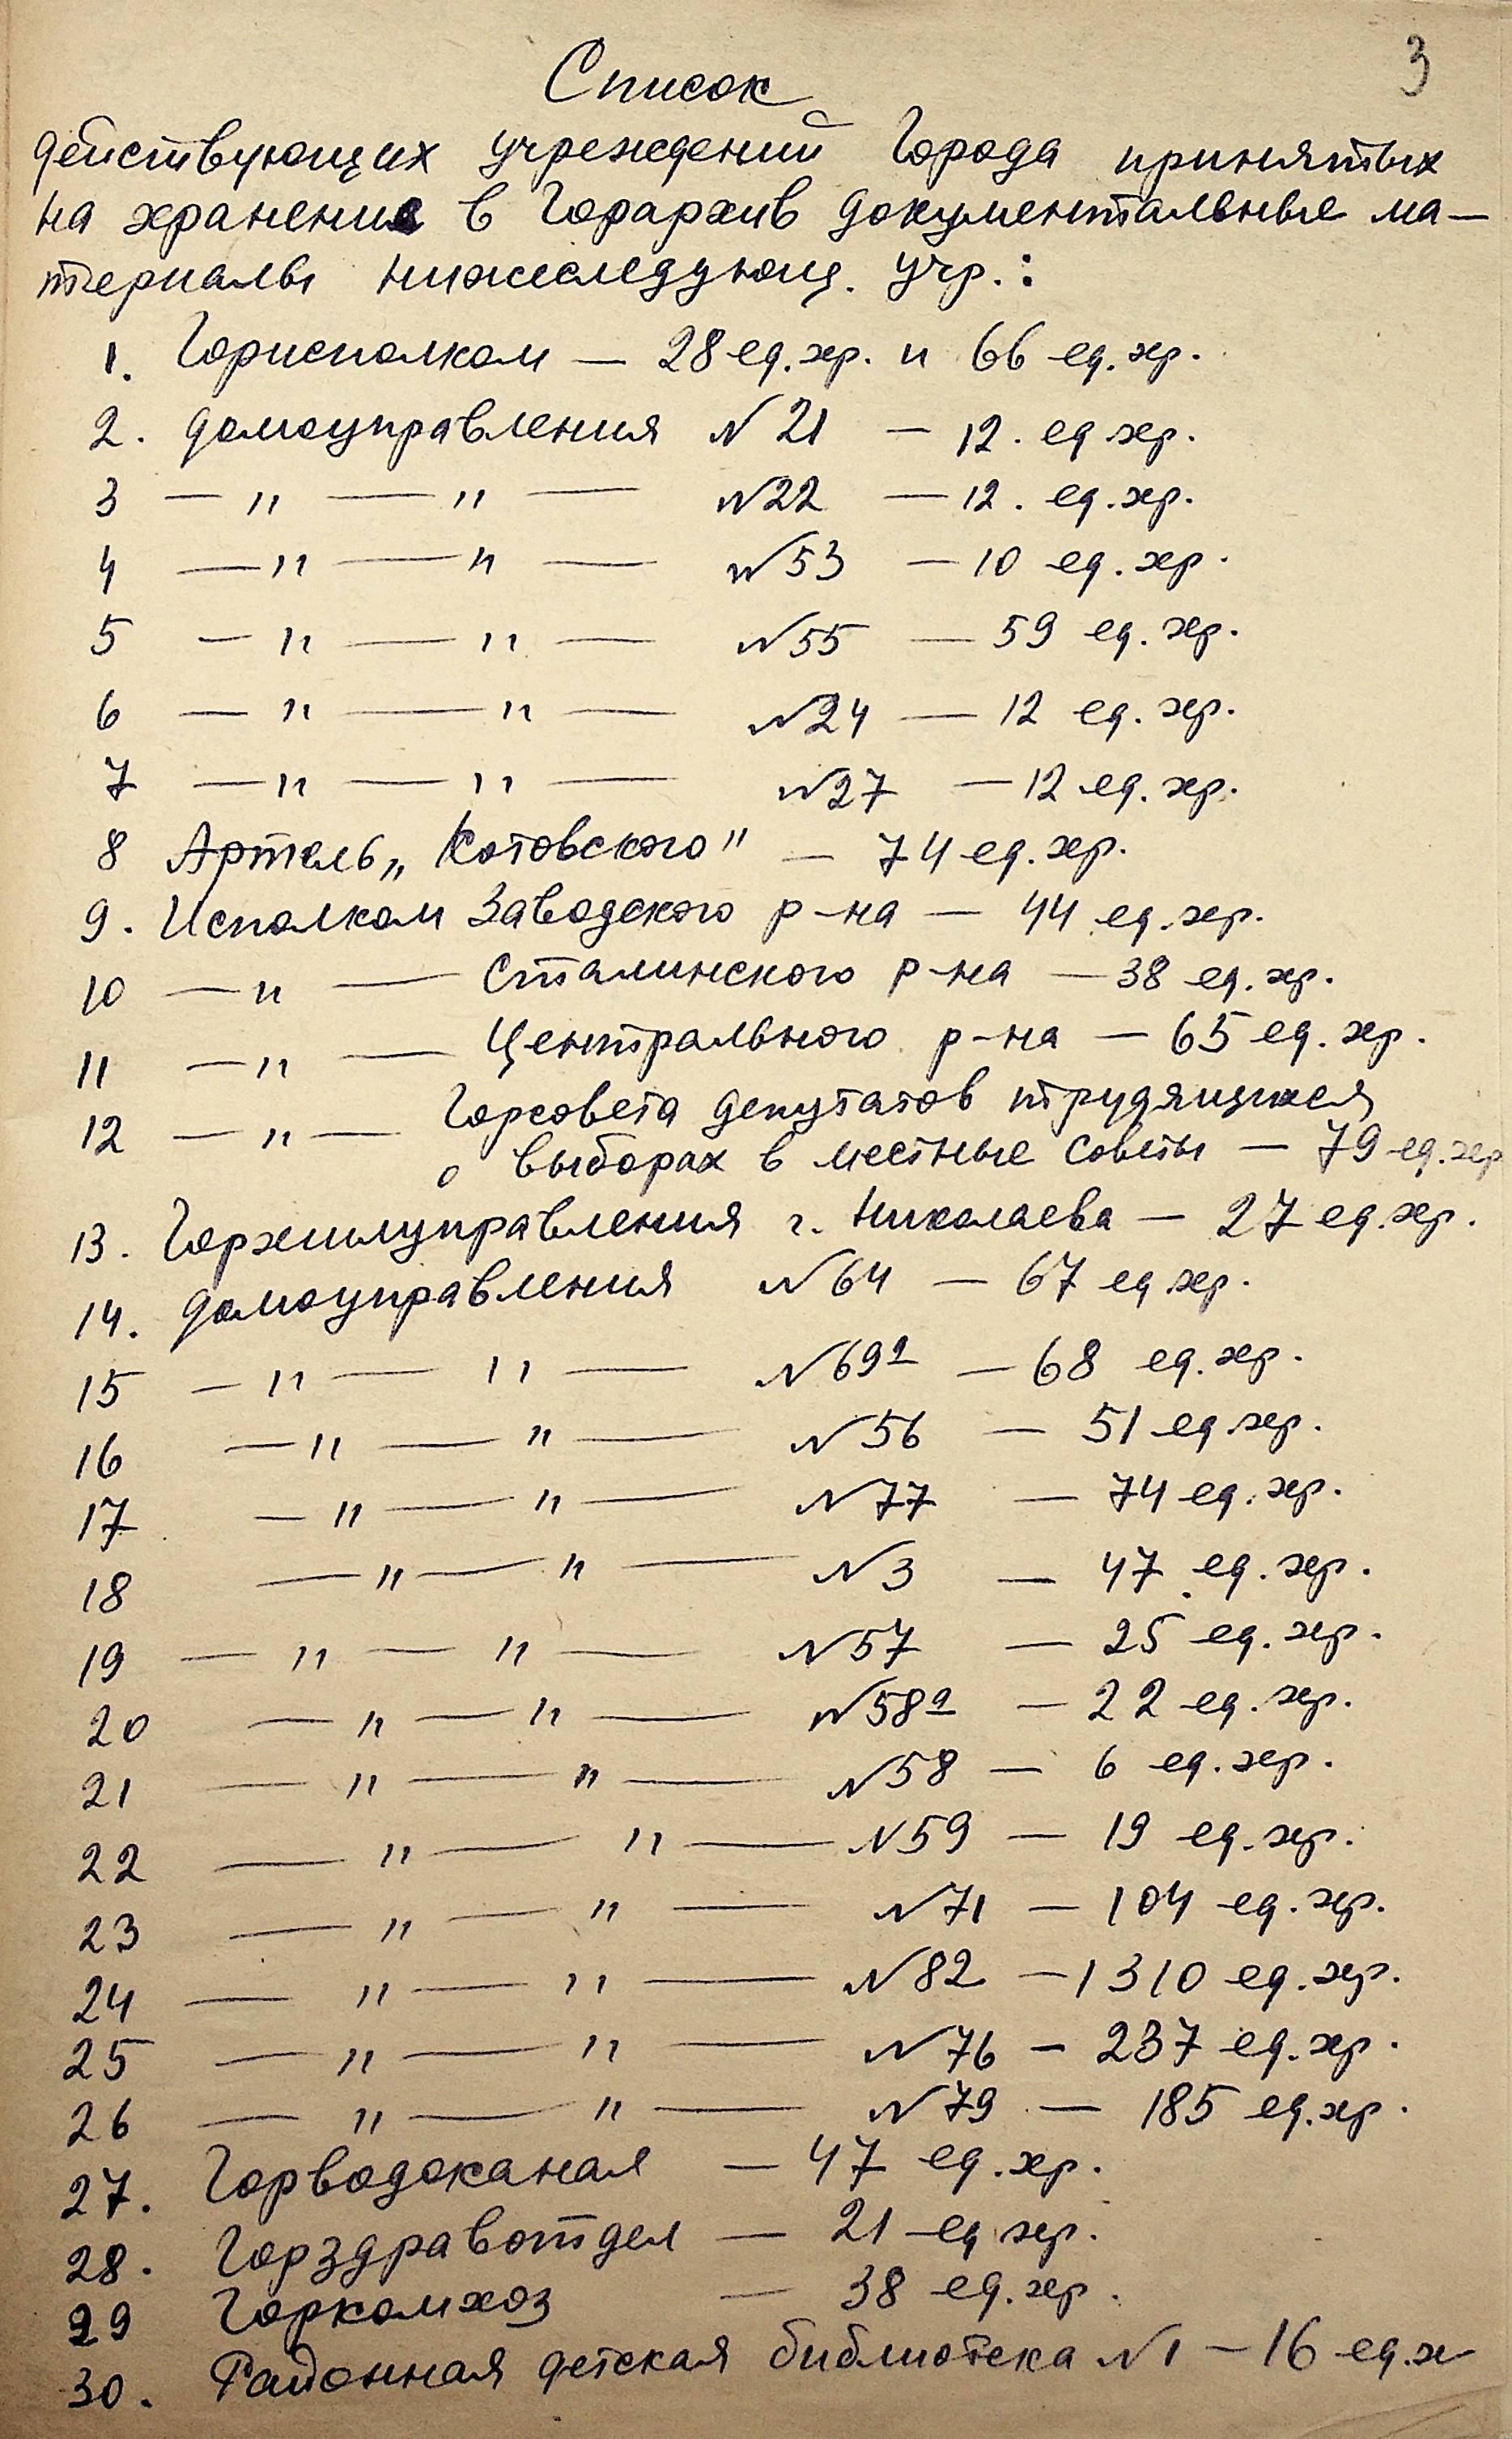 3
Список
действующих учреждений Города принятых
на хранение в Горархив документальные ма-
териалы нижеследующ. учр.:
1. Горисполком — 28 ед. хр. и 66 ед. хр.
2. домоуправления N 21 — 12. ед хр.
3 — " — " — N22 — 12. ед. хр.
4 — " — " — N53 — 10 ед. хр.
5 — " — " — N55 — 59 ед. хр.
6 — " — " — N24 — 12 ед. хр.
7 — " — " — N27 — 12 ед. хр.
8 Артель „Котовского" — 74 ед. хр.
9. Исполком Заводского р-на — 44 ед. хр.
10 — " — Сталинского р-на — 38 ед. хр.
11 — " — Центрального р-на — 65 ед. хр.
12 — " — Горсовета депутатов трудящихся
о выборах в местные советы — 79 ед. хр
13. Горжилуправления г. Николаева — 27 ед. хр.
14. домоуправления N64 — 67 ед хр.
15 — " — " — N69а — 68 ед. хр.
16 — " — " — N56 — 51 ед хр.
17 — " — " — N77 — 74 ед. хр.
18 — " — " — N3 — 47 ед. хр.
19 — " — " — N57 — 25 ед. хр.
20 — " — " — N58а — 22 ед. хр.
21 — " — " — N58 — 6 ед. хр.
22 — " — " — N59 — 19 ед. хр.
23 — " — " — N71 — 104 ед. хр.
24 — " — " — N82 — 1310 ед. хр.
25 — " — " — N76 — 237 ед. хр.
26 — " — " — N79 — 185 ед. хр.
27. Горводоканал — 47 ед. хр.
28. Горздравотдел — 21 ед хр.
29 Горкомхоз — 38 ед. хр.
30. Районная детская библиотека N1 — 16 ед. х